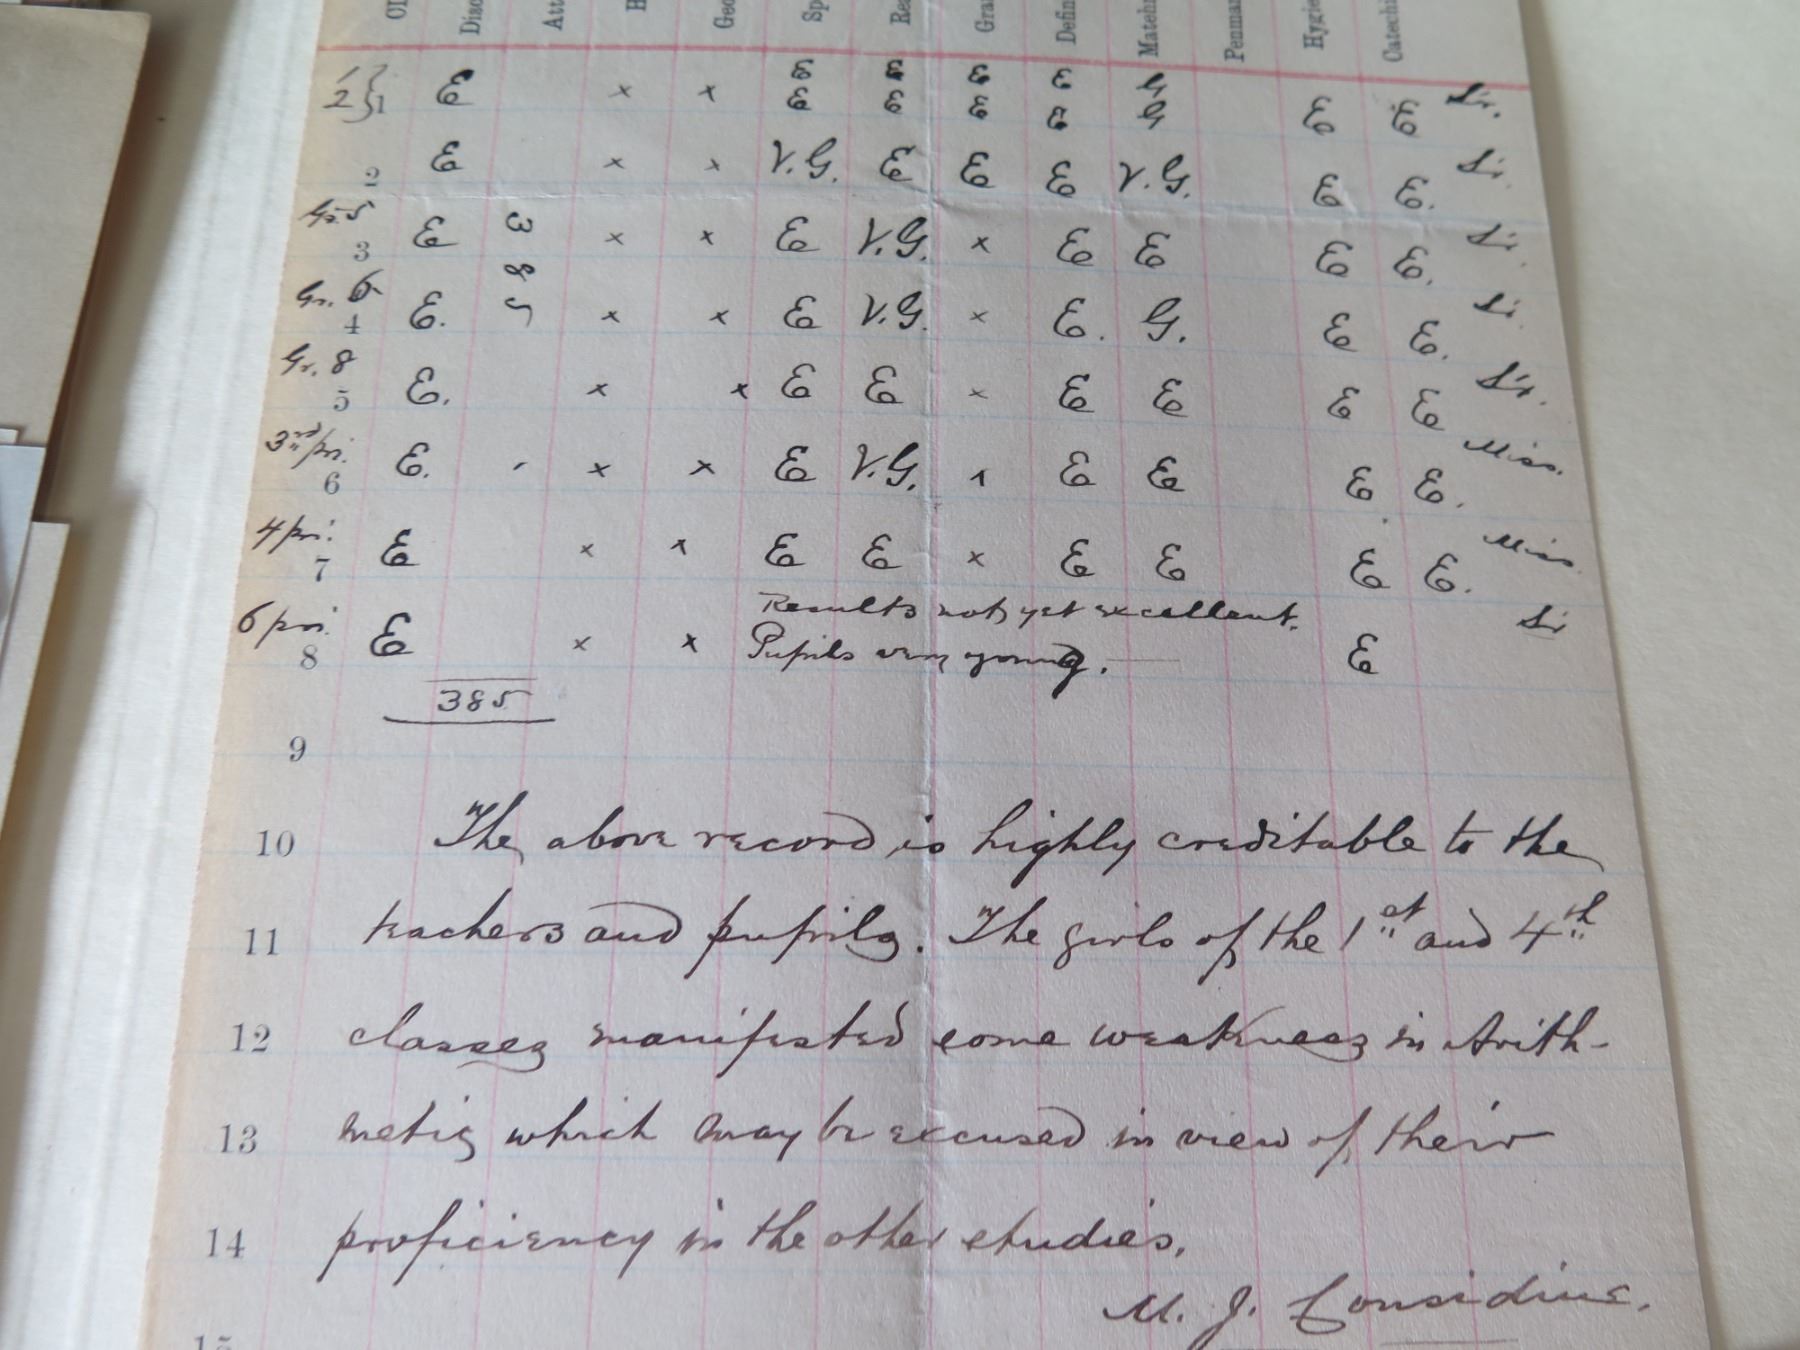 Cl Disc Att H Geo Sp Rea Gra Defin Matehm Penman Hygie Catechi
E E E E G
1 2 } 1 E x x E E E E G E E Sr.
2 E x x V.G. E E E V.G. E E. Sr.
Gr. 5
3 E 3 x x E V.G. x E E E E. Sr.
Gr. 6
4 E. 8 5 x x E V.G. x E. G. E E. Sr.
Gr. 8
5 E. x x E E x E E E E Sr.
3rd pri.
6 E. x x E V.G. x E E E E. Miss.
4 pri.
7 E x x E E x E E E E. Miss.
6 pri. Results not yet excellent.
8 E x x Pupils very young. E Sr
385
9
10 The above record is highly creditable to the
11 teachers and pupils. The girls of the 1st and 4th
12 classes manifested some weakness in Arith-
13 metic which may be excused in view of their
14 proficiency in the other studies.
M. J. Considine.
15